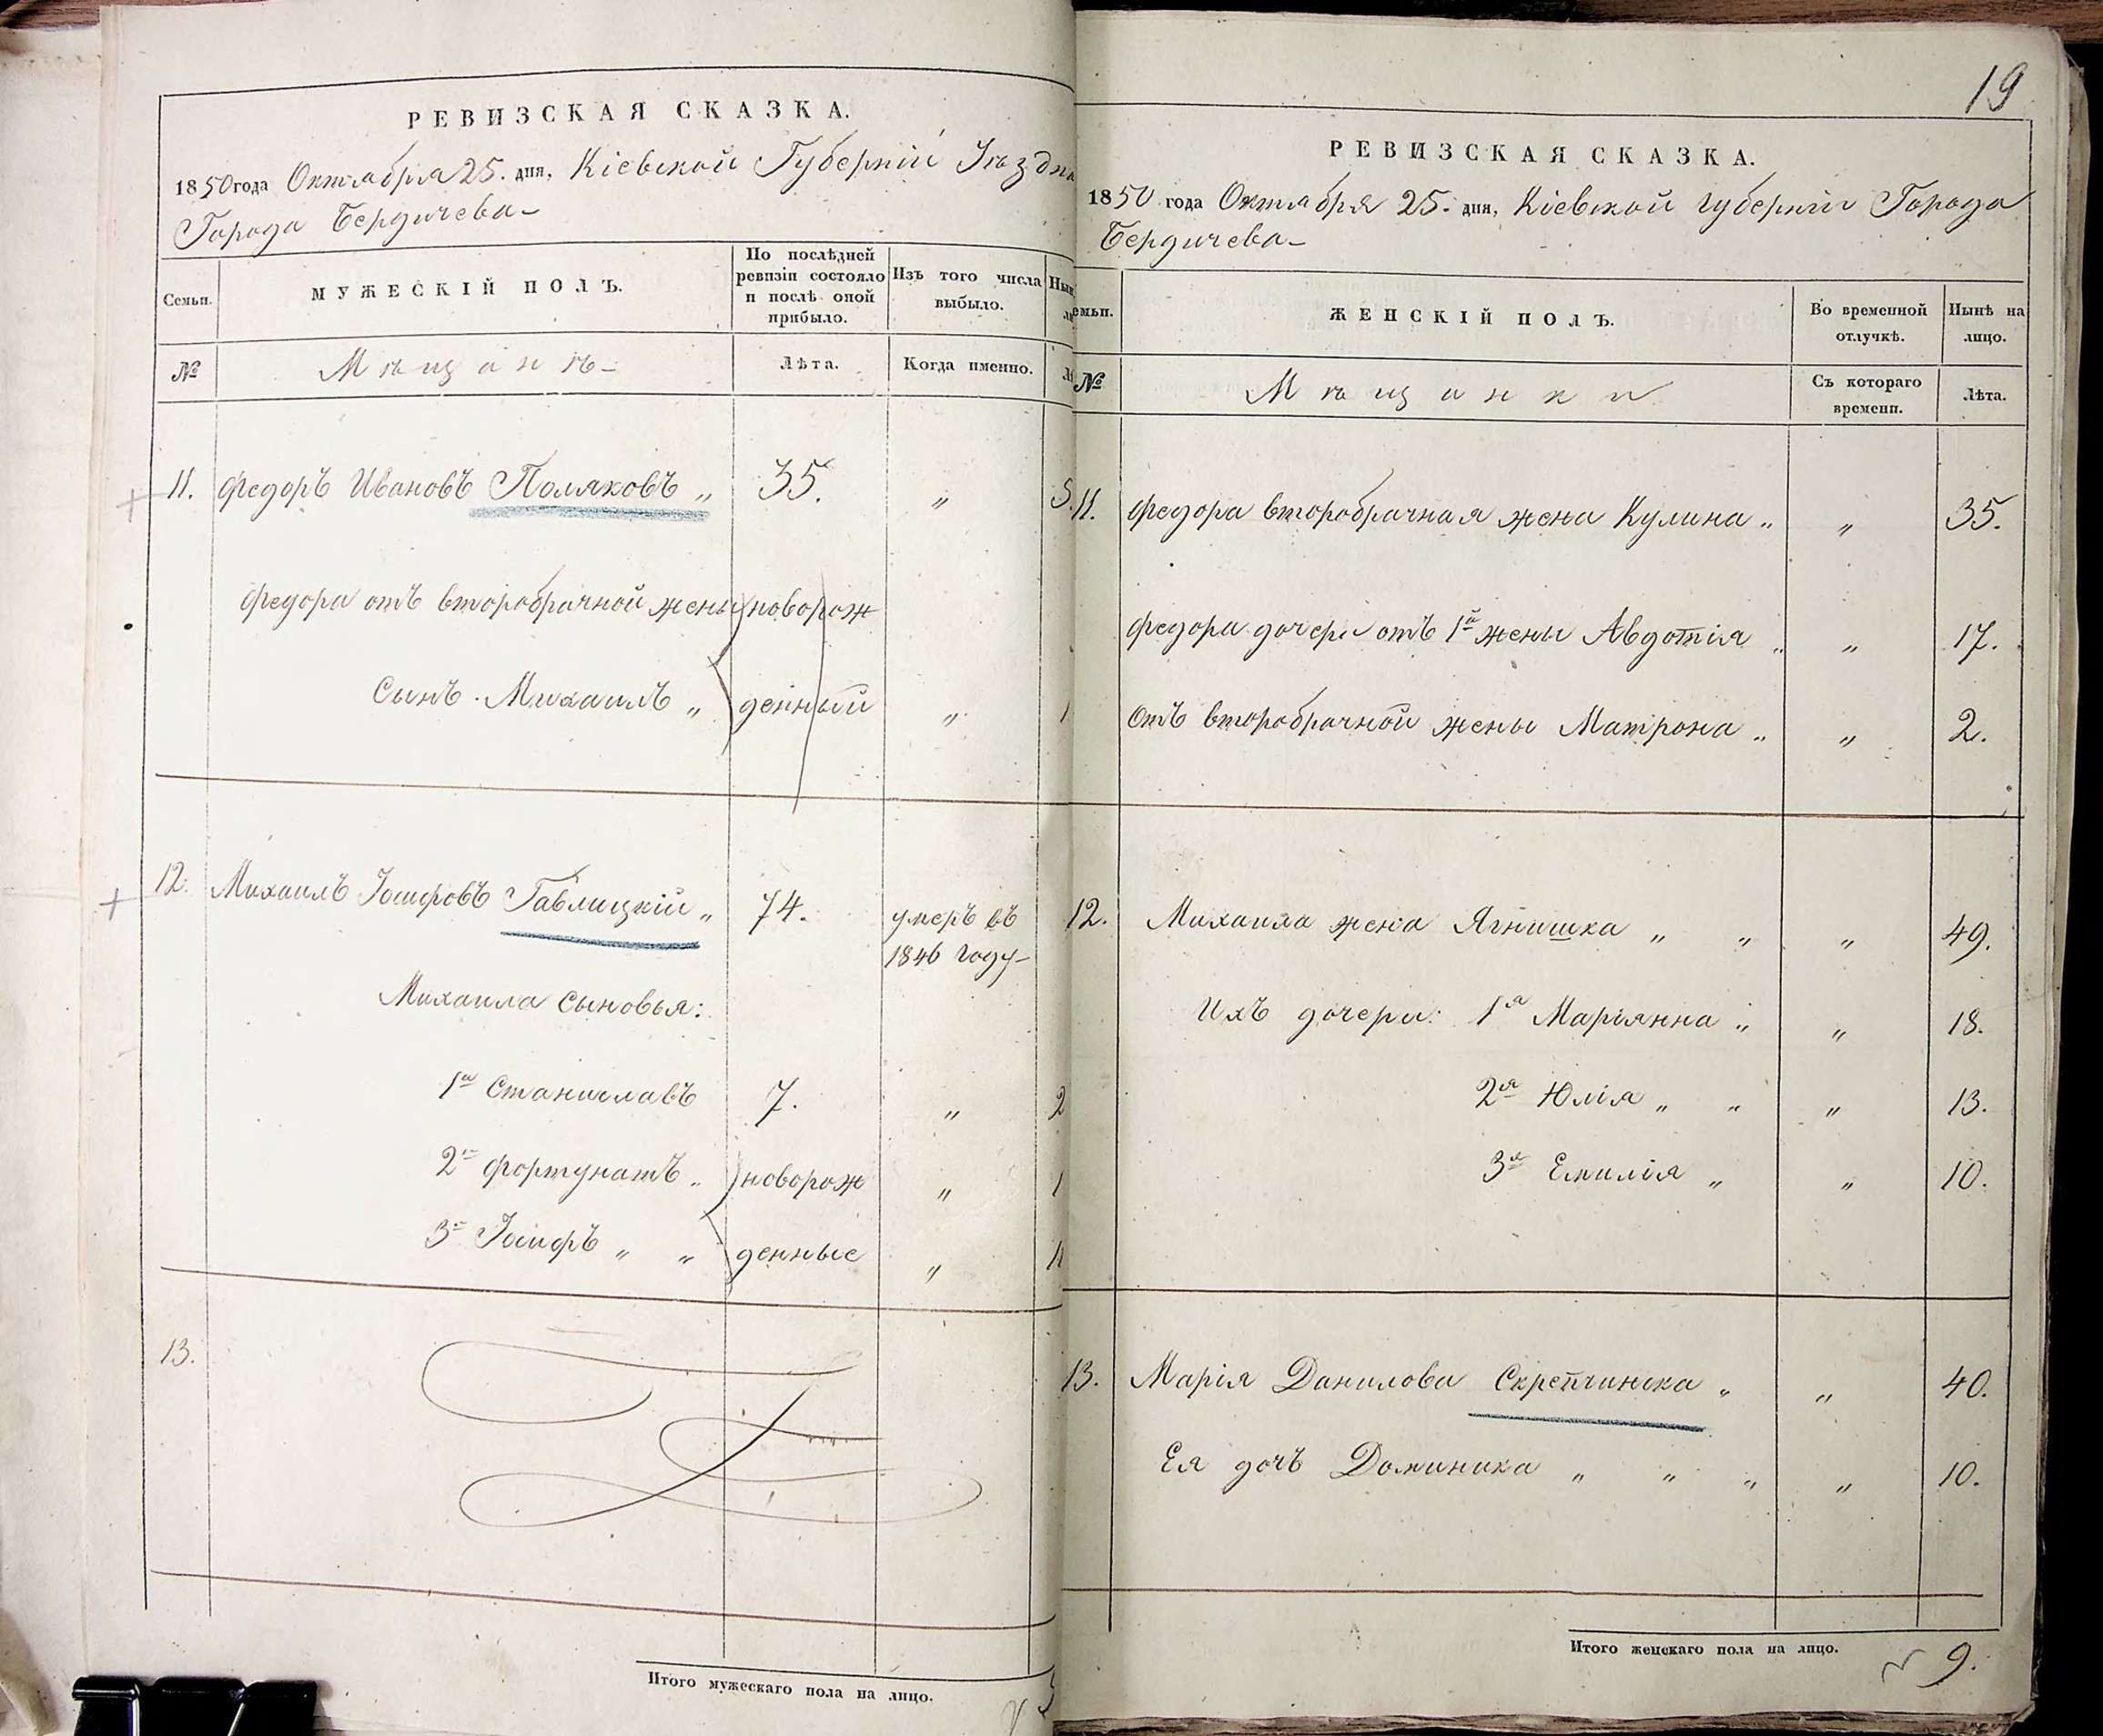 РЕВИЗСКАЯ СКАЗКА.
1850 года Октября 25. дня, Кіевской Губерніи
Города Бердичева
Семьи.
МУЖЕСКІЙ ПОЛЪ.
По послѣдней ревизіи состояло и послѣ оной прибыло.
Изъ того числа выбыло.
№
Мѣщанъ
Лѣта.
Когда именно.
11. Федоръ Ивановъ Поляковъ „ 35. „
Федора отъ второбрачной жены новорож
Сынъ Михаилъ „ денный „
12. Михаилъ Іосифовъ Гавлицкій „ 74. умеръ въ
1846 году
Михаила сыновья:
1й Станиславъ 7. „
2й Фортунатъ „ новорож „
3й Іосифъ „ „ денные „
13.
Итого мужескаго пола на лицо.
19
РЕВИЗСКАЯ СКАЗКА.
1850 года Октября 25. дня, Кіевской Губерніи Города
Бердичева
емьи.
ЖЕНСКІЙ ПОЛЪ.
Во временной отлучкѣ.
Нынѣ на лицо.
№
Мѣщанки
Съ котораго времени.
Лѣта.
11. Федора второбрачная жена Кулина „ „ 35.
Федора дочери отъ 1й жены Авдотія „ „ 17.
отъ второбрачной жены Матрона „ „ 2.
12. Михаила жена Ягнишка „ „ „ 49.
Ихъ дочери: 1я Маріянна „ „ 18.
2я Юлія „ „ „ 13.
3я Емилія „ „ 10.
13. Марія Данилова Скрепчинска „ „ 40.
Ея дочь Доминика „ „ „ „ 10.
Итого женскаго пола на лицо. 9.